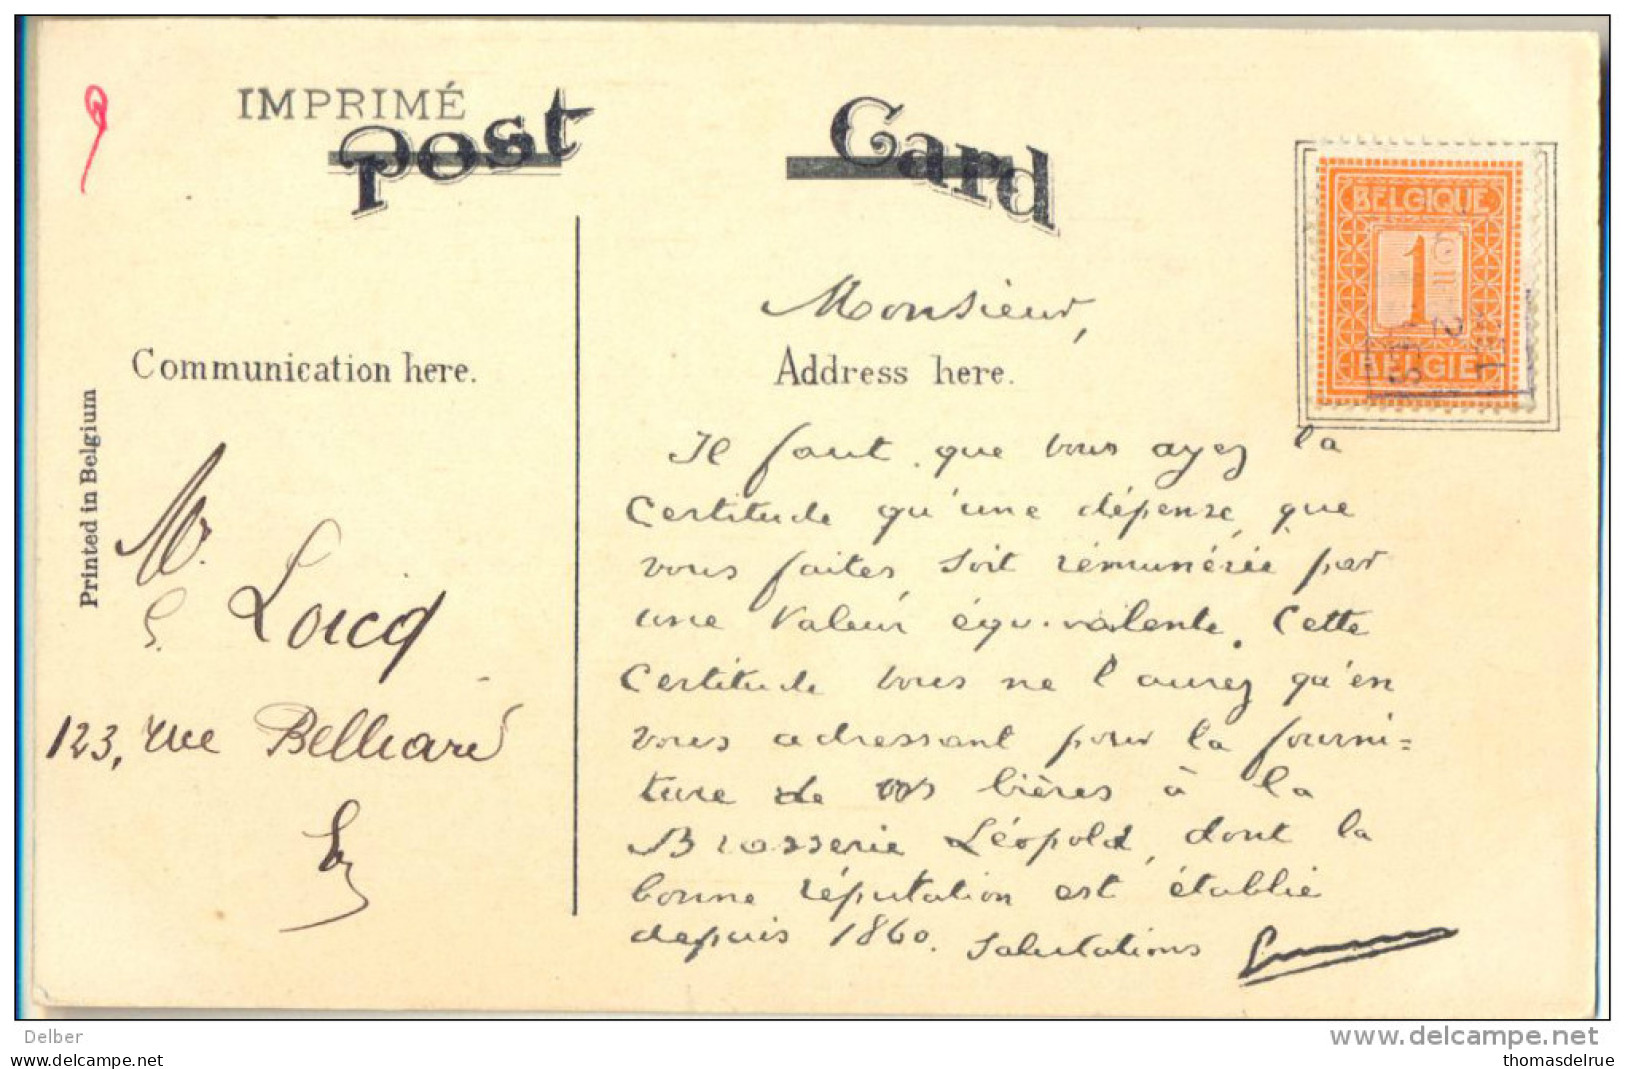 IMPRIMÉ
Post Card
BELGIQUE
1c
BELGIE
Communication here.
Address here.
Printed in Belgium
Mr.
Loicq
123, rue Belliard
Monsieur,
Il faut que vous ayez la
Certitude qu'une dépense, que
vous faites, soit rémunérée par
une valeur équivalente. Cette
Certitude vous ne l'aurez qu'en
vous adressant pour la fourni=
ture de vos bières à la
Brasserie Léopold, dont la
bonne réputation est établie
depuis 1860. Salutations
Delber
delcampe.net
www.delcampe.net
thomasdelrue